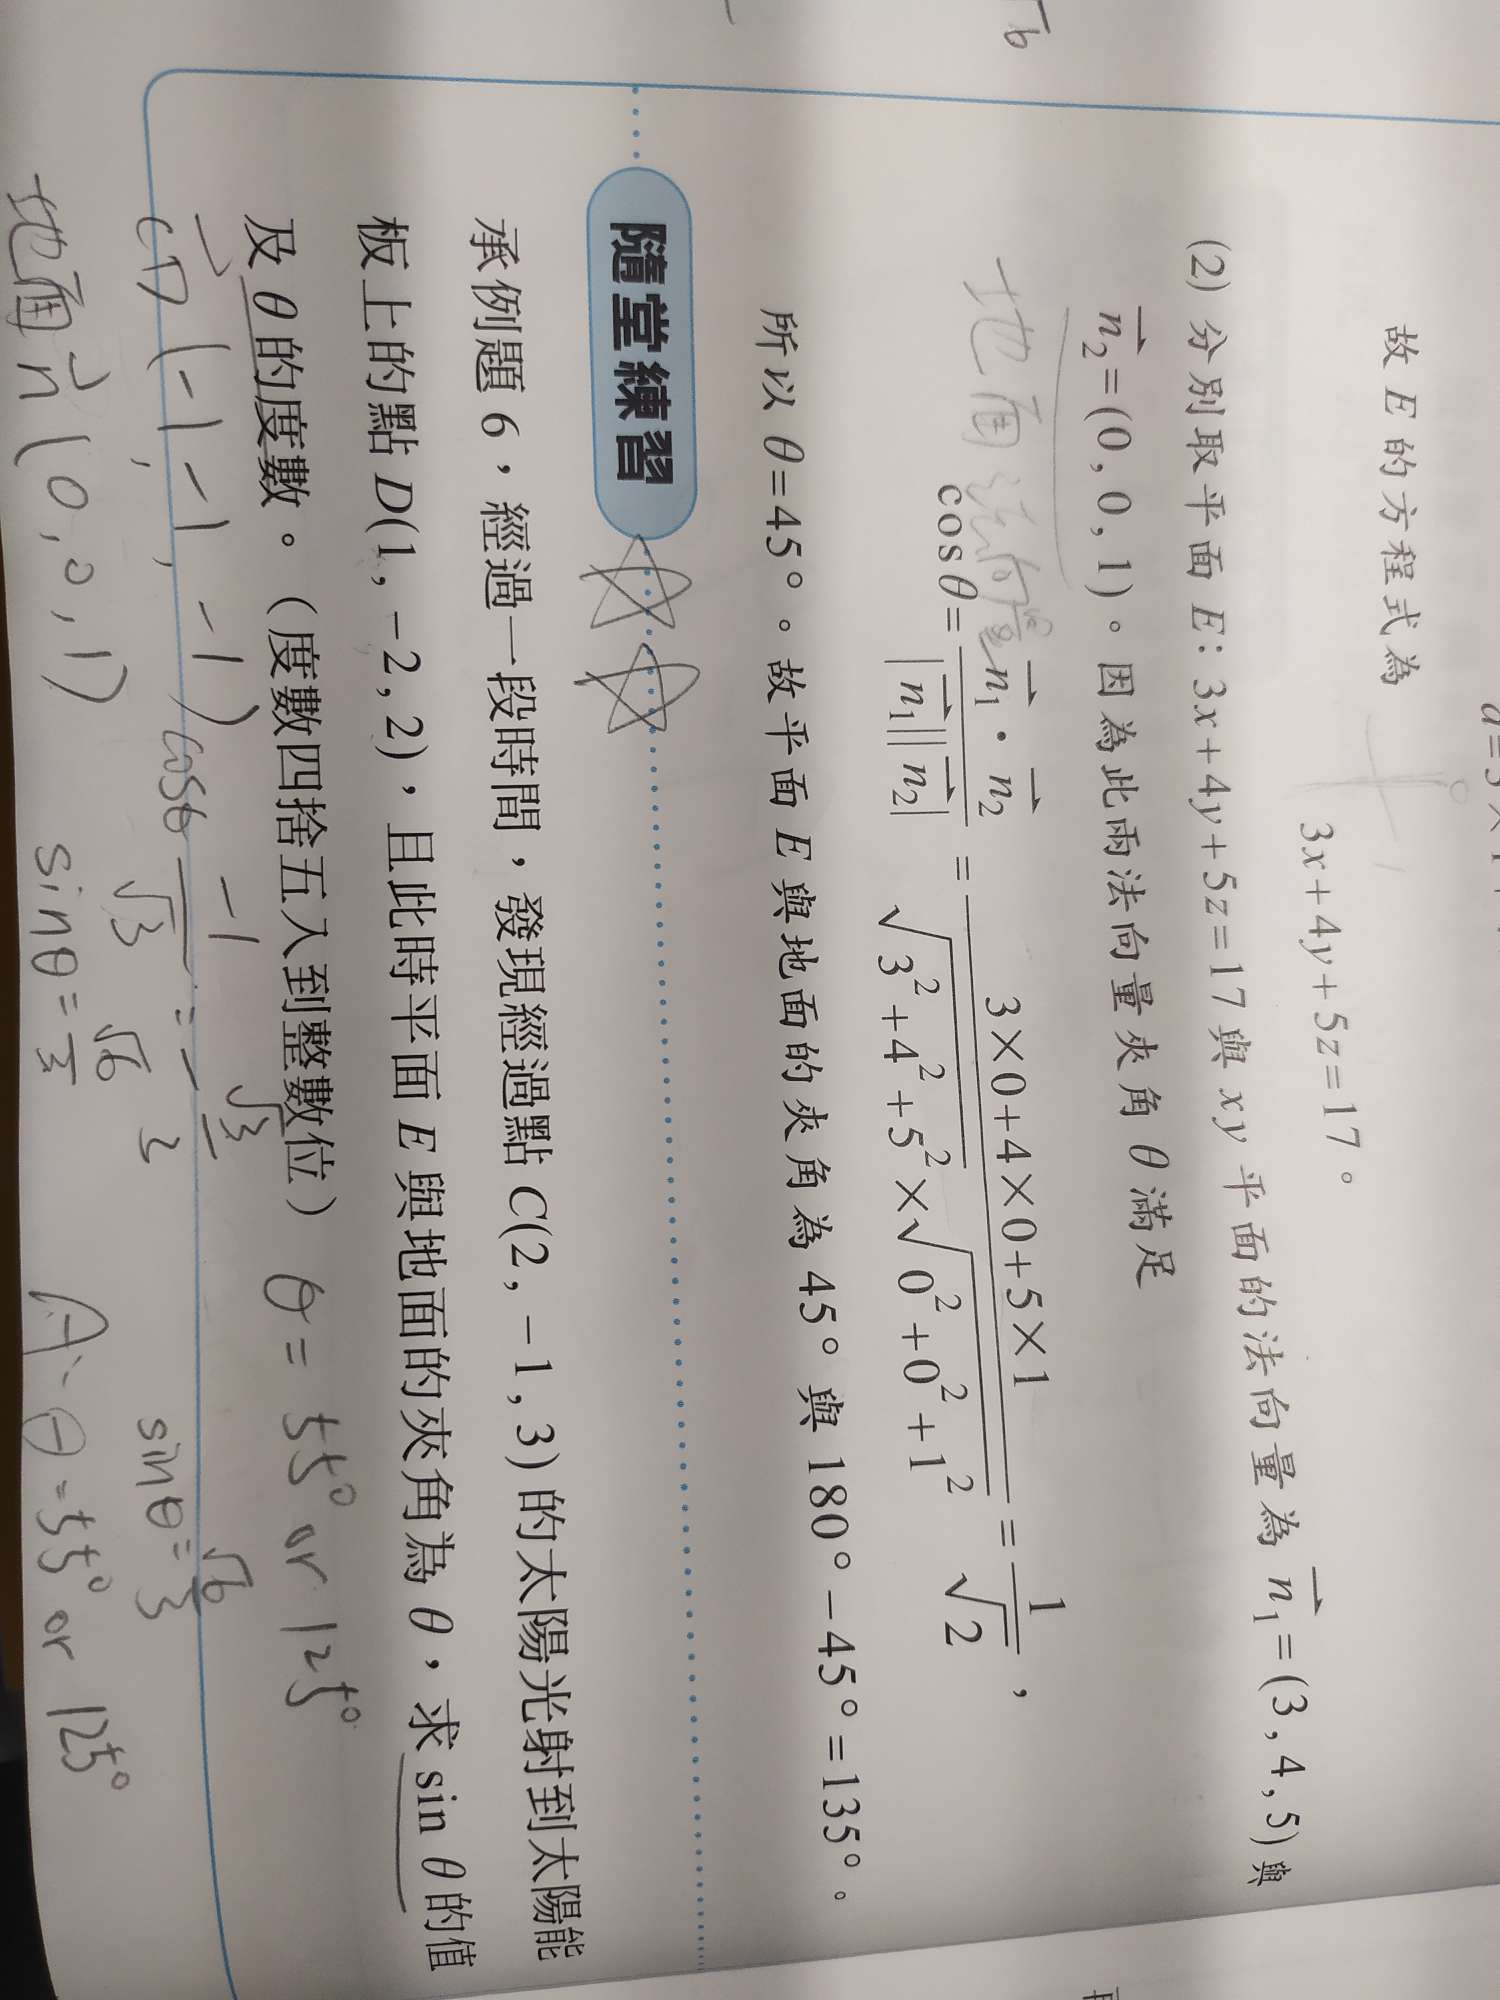 a=3×1
3x+4y+5z=17。
故 E 的方程式為
(2) 分別取平面 E: 3x+4y+5z=17 與 xy 平面的法向量為 n₁=(3, 4, 5) 與
n₂=(0, 0, 1)。因為此兩法向量夾角 θ 滿足
地面法向量
cosθ= n₁·n₂ / |n₁||n₂| = 3×0+4×0+5×1 / √3²+4²+5²×√0²+0²+1² = 1/√2,
所以 θ=45°。故平面 E 與地面的夾角為 45° 與 180°−45°=135°。
隨堂練習
承例題 6,經過一段時間,發現經過點 C(2, −1, 3) 的太陽光射到太陽能
板上的點 D(1, −2, 2),且此時平面 E 與地面的夾角為 θ,求 sin θ 的值
及 θ 的度數。(度數四捨五入到整數位) θ= 55° or 125°
CD (-1, -1, -1) cosθ -1/√3 = -√3/3 sinθ=√6/3
地面 n (0, 0, 1) sinθ=√6/3 A: θ=55° or 125°